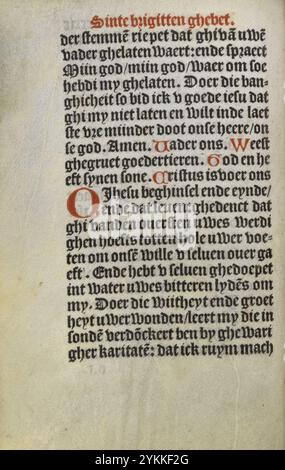 Sinte brigitten ghebet.
der stemmē riepet dat ghi vā uwē
vader ghelaten waert: ende spraect
Mijn god/mijn god/waer om soe
hebdi my ghelaten. Doer die ban-
gicheit so bid ick v goede iesu dat
ghi my niet laten en wilt inde laet
ste vre mijnder doot onse heere/on
se god. Amen. Vader ons. Weest
ghegruet goedertieren. God en he
eft synen sone. Cristus is voer ons
O Jhesu beghinsel ende eynde/
ende dat leuen: ghedenct dat
ghi vanden ouersten uwes werdi
ghen hoefts totter hole uwer voe-
ten om onsē wille v seluen ouer ga
eft. Ende hebt v seluen ghedoepet
int water uwes bitteren lydēs om
my. Doer die wijtheyt ende groet
heyt uwer wonden/leert my die in
sondē verdōckert ben by ghewari
gher karitatē: dat ick ruym mach
alamy
Image ID: 2YKKF2G
www.alamy.com